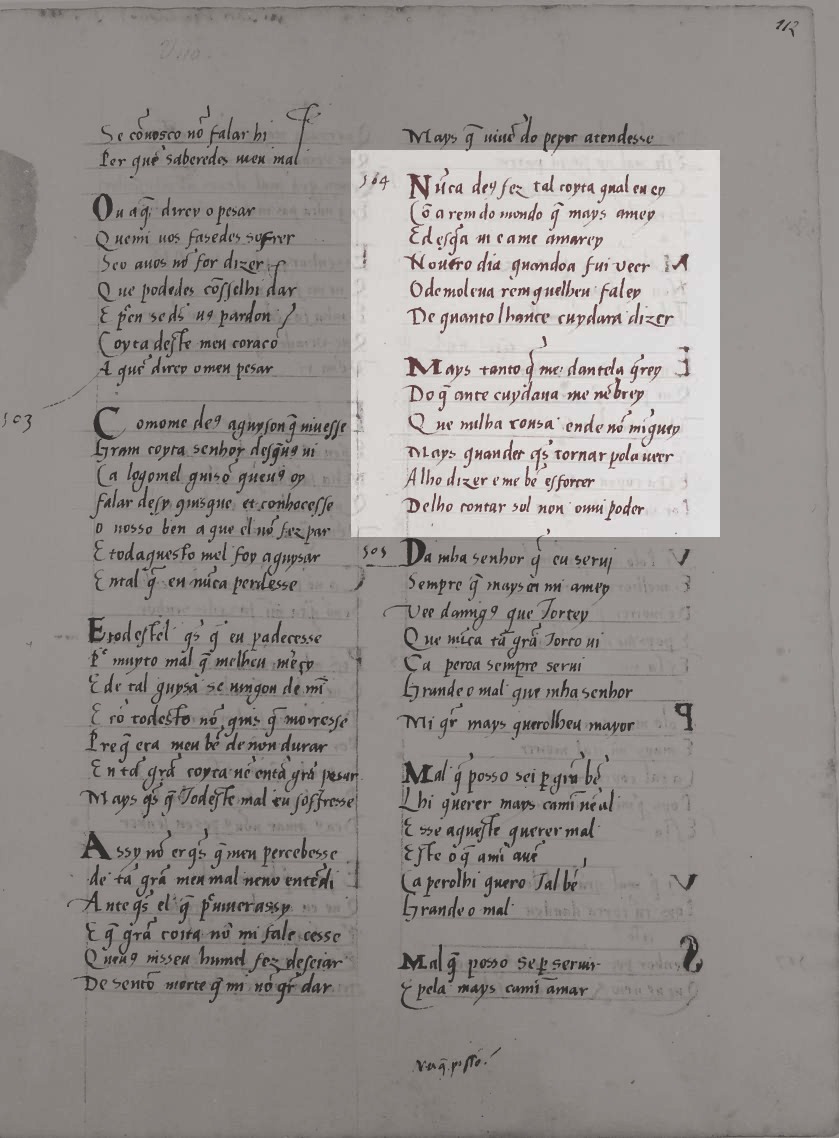 112
Se cõuosco nõ falar hi
Per que saberedes meu mal
Ou a q̃ direy o pesar
Quemi uos fasedes sofrer
Seo auos nõ for dizer
Que podedes cõsselhi dar
E pen se ds̃ uꝯ pardon
Coyta deste meu coracõ
A que direy omeu pesar
503
Comome deꝯ aguyson q̃ niuesse
Gram coyta senhor desq̃uꝯ ui
Ca logomel guisõ queuꝯ oy
falar desy quisque et conhocesse
o nosso ben a que el nõ fez par
E todaquesto mel foy aguysar
Ental q̃ eu nũca perdesse
E todestel qs̃ q̃ eu padecesse
muyto mal q̃ melheu meçy
E de tal guysa se uingou de mĩ
E rõ todesto nõ quis q̃ morresse
Pre q̃ era meu bẽ de non durar
En tã grã coyta nẽ entã grã pesar
Mays qs̃ q̃ Todeste mal eu soffresse
Assy nõ er qs̃ q̃ meu percebesse
de tã grã meu mal neno entẽdi
Ante qs̃ el q̃ uiuerassy
E q̃ grã coita nõ mi fale cesse
Queuꝯ uisseu humel fez deseiar
De sentõ morte q̃ mi nõ qr̃ dar
Mays q̃ uiuẽ do peyor atendesse
504
Nũca deꝯ fez tal coyta qual eu ey
Cõ a rem do mondo q̃ mays amey
E desq̃a ui e ame amarey
Noutro dia quandoa fui ueer
O demoleua rem quelheu faley
De quanto lhante cuydara dizer
Mays tanto q̃ me dantela q̃rey
Do q̃ ante cuydaua me nẽbrey
Que nulha cousa ende nõ miguey
Mays quander qs̃ tornar pola ueer
Alho dizer e me bẽ esforcer
Delho contar sol non ouui poder
505
Da mha senhor q̃ eu serui
Sempre q̃ mays ca mi amey
Vee damigꝯ que Tortey
Que nũca tã grã Torto ui
Ca peroa sempre serui
Grande o mal que mha senhor
Mi qr̃ mays querolheu mayor
Mal q̃ posso sei p̱ grã bẽ
Lhi querer mays camĩ nẽ al
E sse aqueste querer mal
Este o q̃ ami auẽ
Ca perolhi quero Tal bẽ
Grande o mal
Mal q̃ posso se p̱ seruir
E pela mays camĩ amar